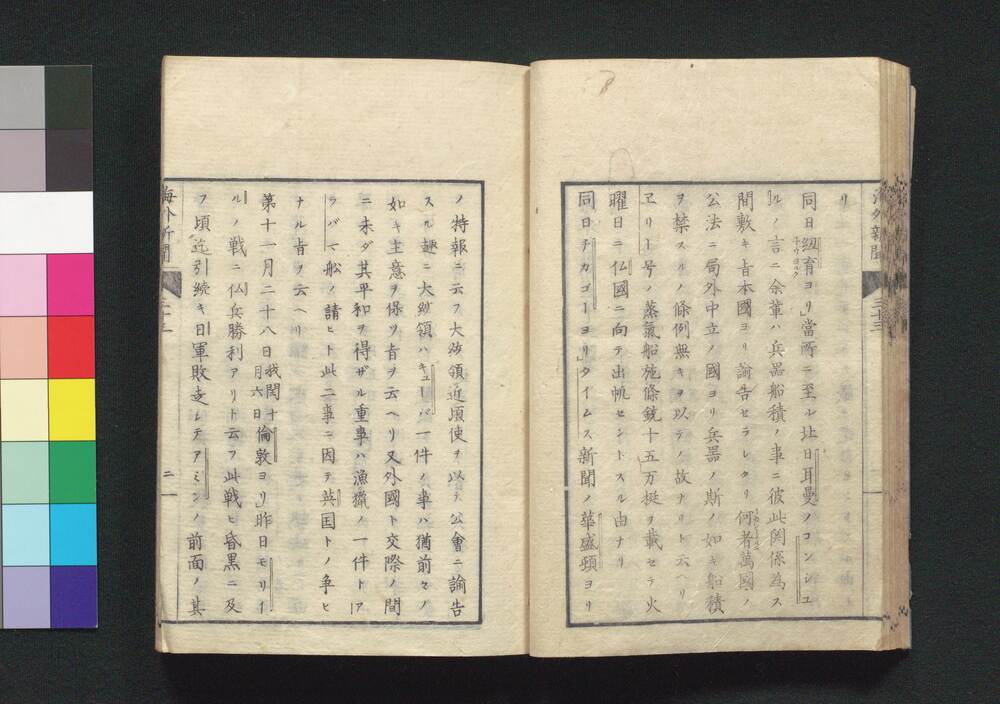 リ
同日紐育ヨリ」當所ニ至ル處日耳曼ノコンシユ
ルノ言ニ余輩ハ兵器船積ノ事ニ彼此関係為ス
間敷キ旨本國ヨリ諭告セラレタリ何者萬國ノ
公法ニ局外中立ノ國ヨリ兵器ノ斯ノ如キ船積
ヲ禁スルノ條例無キヲ以テノ故ナリト云ヘリ
ヱリー号ノ蒸氣船施條銃十五万挺ヲ載セラ火
曜日ニ仏國ニ向テ出帆セントスル由ナリ
同日チカゴーヨリ」タイムス新聞ノ華盛頓ヨリ
海外新聞
二十三
ノ特報ニ云フ大統領近頃使ヲ以テ公會ニ諭告
スル趣ニ大統領ハキューバ一件ノ事ハ猶前々ノ
如キ主意ヲ保ツ旨ヲ云ヘリ又外國ト交際ノ間
ニ未ダ其平和ヲ得ザル重事ハ漁獵ノ一件トア
ラバマ船ノ請ヒト此二事ニ因テ英国トノ争ヒ
ナル旨ヲ云ヘリ
第十一月二十八日我閏十月六日倫敦ヨリ」昨日モリー
ルノ戦ニ仏兵勝利アリト云フ此戦ヒ昏黒ニ及
フ頃迄引続キ日軍敗走シテアミンノ前面ノ其
海外新聞
二十三
二